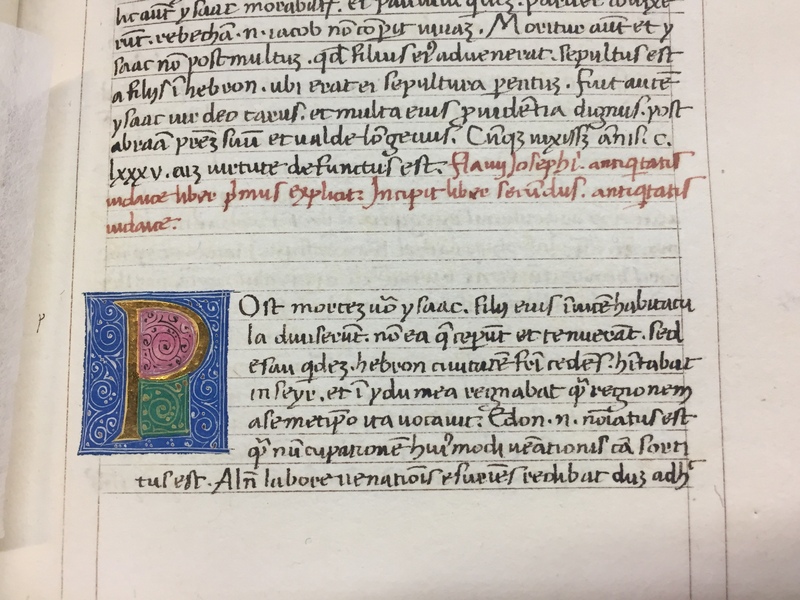 hc aūt ysaac morabat᷑. et
rūt. rebechā. n. iacob nō cōpit uiuaʒ. Moritur aūt et y
saac nō post multuʒ. qđ filius eiꝰ aduenerat. sepultus est
a filijs ī hebron. ubi erat ei sepultura parentuʒ. Fuit autē
ysaac uir deo carus. et multa eius ꝓuidētia dignus. post
abraā prēʒ suū et ualde lōgeuus. Cūqʒ uixissʒ ānis. c.
lxxxv. cuʒ uirtute defunctus est. flauij Josephi. antiq̄tatis
iudaice liber p̄mus explicit: Incipit liber secūdus. antiq̄tatis
iudaice.
POst morteʒ uō ysaac. filij eius īuicē habitacu
la diuiserūt. nō ea q̄ ceperūt et tenuerāt. Sed
esau qdeʒ. hebron ciuitatē frī cedēs. hītabat
in seyr. et ī ydumea regnabat q̄ꝫ regionem
a semetip̄o ita uocauit: Edon. n. noīatus est
q̄ꝫ nūcupationē huiꝰmodi uēationis cā sorti
tus est. Alñ labore uenatiōis esuriēs redibat duʒ adhᶜ